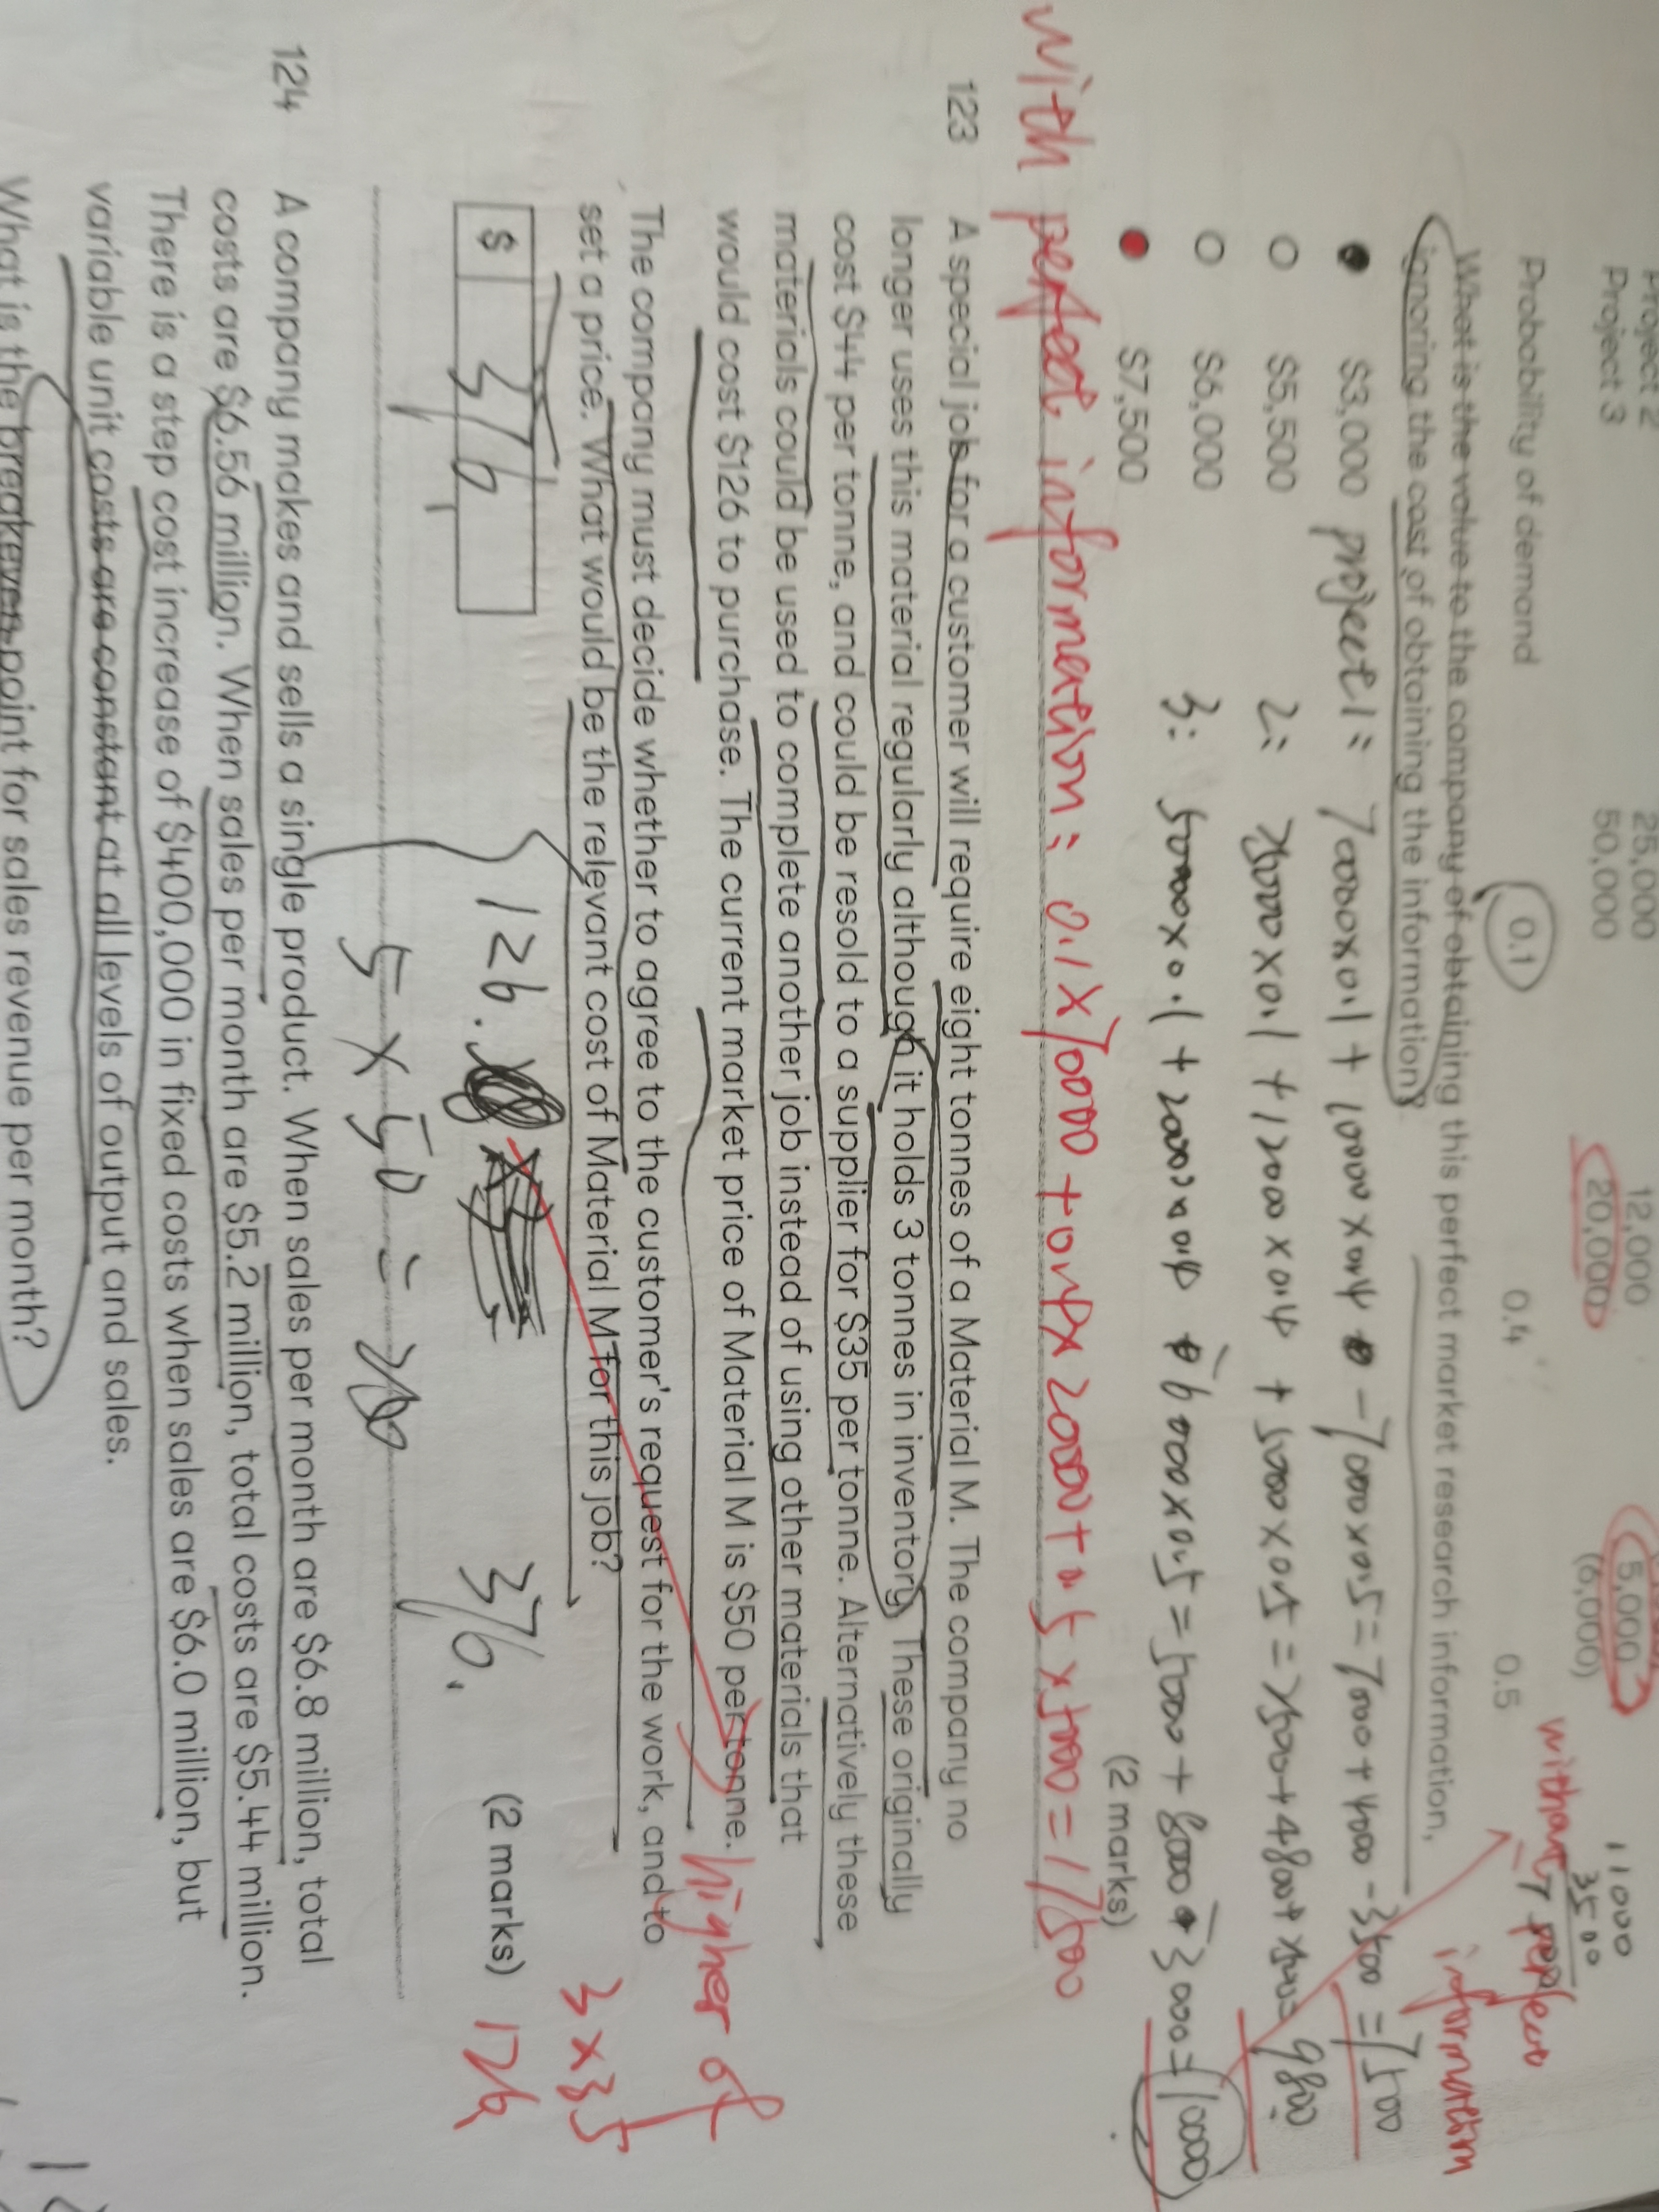 Project 2 25,000 12,000 5,000
Project 3 50,000 20,000 (6,000)
Probability of demand 0.1 0.4 0.5
11000
3500
without perfect
information
What is the value to the company of obtaining this perfect market research information,
ignoring the cost of obtaining the information?
$3,000
project 1: 70000x0.1 + 10000x0.4 - 7000x0.5 = 7000 + 4000 - 3500 = 7500
$5,500
2: 25000x0.1 + 12000x0.4 + 5000x0.5 = 2500 + 4800 + 2500 = 9800
$6,000
3: 50000x0.1 + 20000x0.4 - 6000x0.5 = 5000 + 8000 - 3000 = 10000
$7,500
(2 marks)
with perfect information: 0.1x70000 + 0.4x20000 + 0.5x5000 = 17500
123 A special job for a customer will require eight tonnes of a Material M. The company no
longer uses this material regularly although it holds 3 tonnes in inventory. These originally
cost $44 per tonne, and could be resold to a supplier for $35 per tonne. Alternatively these
materials could be used to complete another job instead of using other materials that
would cost $126 to purchase. The current market price of Material M is $50 per tonne.
higher of
The company must decide whether to agree to the customer's request for the work, and to
set a price. What would be the relevant cost of Material M for this job?
3x35
$ 376
126.
376.
(2 marks)
126
5 x 50 = 250
124 A company makes and sells a single product. When sales per month are $6.8 million, total
costs are $6.56 million. When sales per month are $5.2 million, total costs are $5.44 million.
There is a step cost increase of $400,000 in fixed costs when sales are $6.0 million, but
variable unit costs are constant at all levels of output and sales.
What is the breakeven point for sales revenue per month?